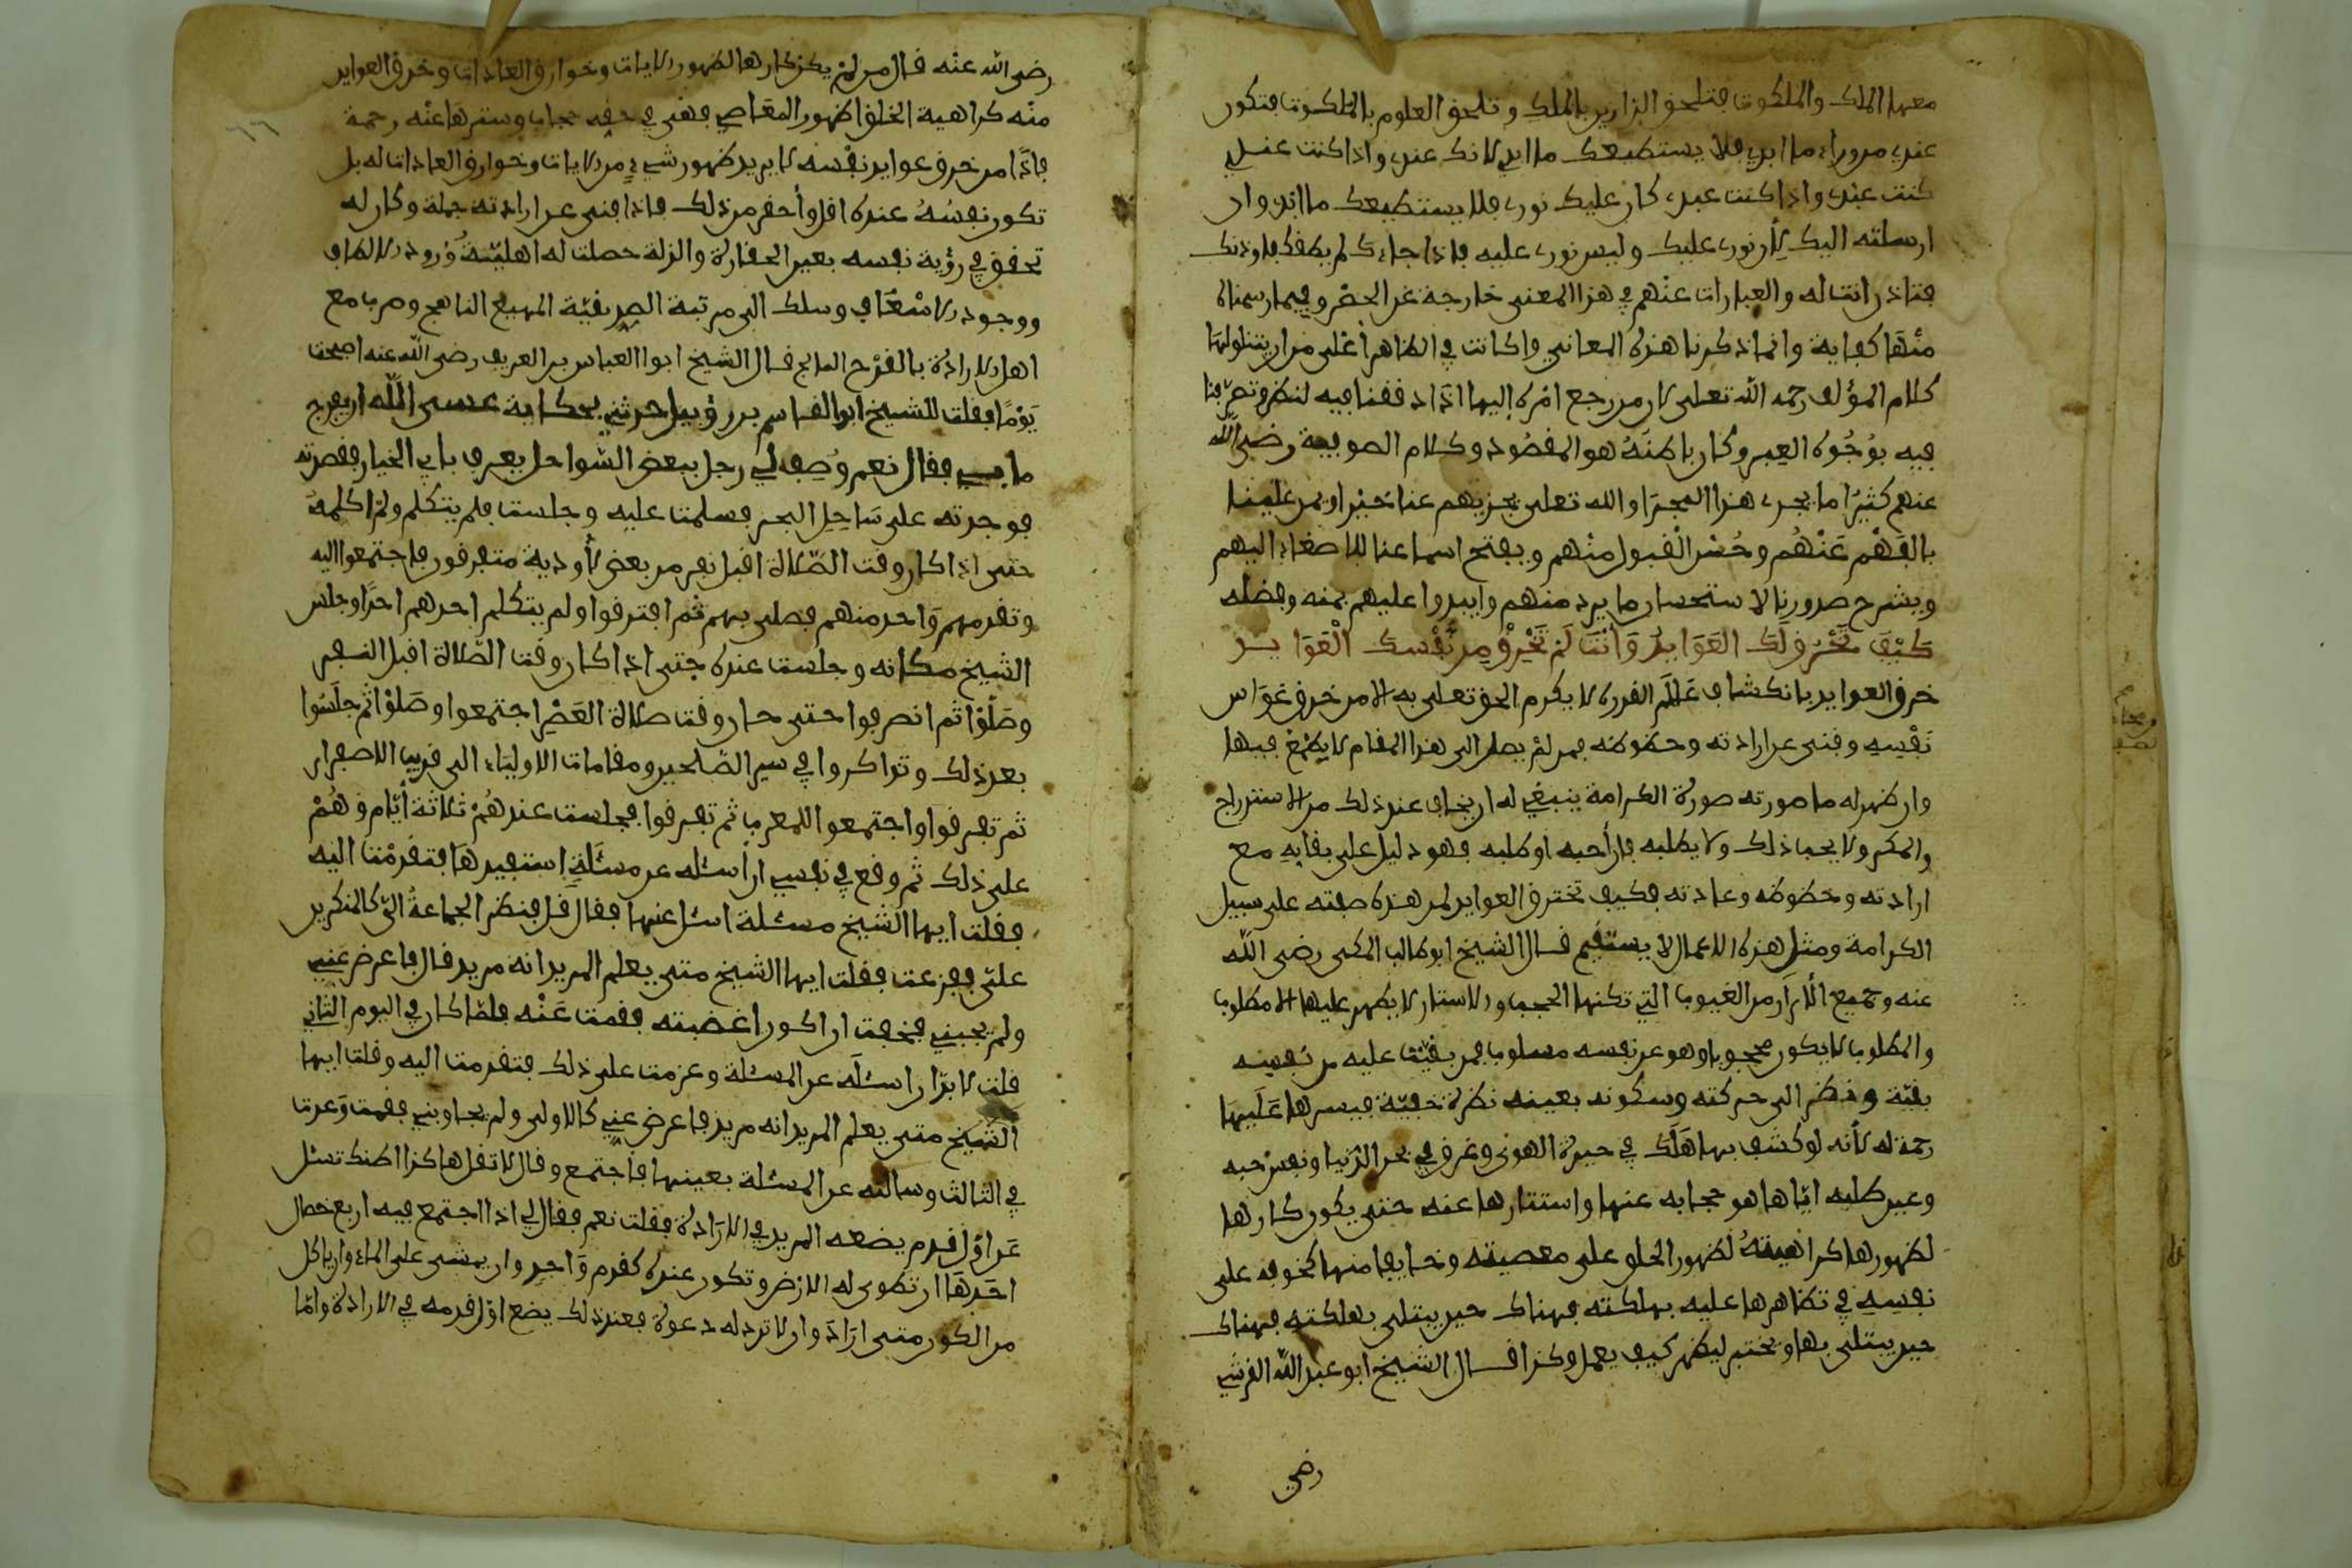 معهما الملك والملكوت فتلحق الدارين بالملك وتلحق العلوم بالملكوت فتكون
عندي من وراء ما ابدي فلا يستطيعك ما ابدي لانك عندي واذا كنت عندي
كنت عبدي واذا كنت عبدي كان عليك نوري فلا يستطيعك ما ابدي وان
ارسلته اليك لأن نوري عليك وليس نوري عليه فاذا جاءك لم يطقك فاوذنك
فتاذن انت له والعبارات عنهم في هذا المعنى خارجة عن الحصر وفيما رسمناه
منها كفاية وانما ذكرنا هذه المعاني وإن كانت في الظاهر أعلى من ان يتناولها
كلام المؤلف رحمه الله تعلى لان مرجع امره إليها اذ اذ فقنا فيه لنظر وتصرفنا
فيه بوُجُوه العِبر وكان باطنه هو المقصُود وكلام الصوفية رضي الله
عنهم كثيرًا ما يجرى هذا المجرا والله تعلى يجزيهم عنا خيرا ويمن علينا
بالفَهْم عَنْهُم وحُسْن القبول منهم ويفتح اسماعنا للاصغاء اليهم
ويشرح صدورنا لاستحسان ما يرد منهم وايبدوا عليهم بمنه وفضله
كَيْفَ تُخْرَق لَكَ العَوَايِدُ وَأَنْتَ لَمْ تَخْرِقْ مِن نَّفْسِكَ الْعَوَايِدَ
خرق العوايد بانكشاف عَالَم القدرة لا يكرم الحق تعلى به الا من خرق عَوَايد
نَفْسِهِ وفنى عن ارادته وحظوظه فمن لمْ يصل الى هذا المقام لا يطمَعْ فيها
وان ظهر له ما صورته صورة الكرامة ينبغي له ان يخاف عند ذلك من الاستدراج
والمكر ولا يحب ذلك ولا يطلبه فإن أحبه او طلبه فهو دليل على بقايه مع
ارادته وحظوظه وعادته فكيف تخترق العوايد لمن هذه صفته على سبيل
الكرامة ومثل هذه الاعمال لا يستقيم قال الشيخ ابو طالب المكي رضى الله
عنه وجميع الأَبْرار من الغيوب التي تكنها الحجب والاستار لا يظهر عليها الا مطلوب
والمطلوب لا يكون محجوبا وهو عن نفسه مسلوب فمن بقيت عليه من نفسه
بقيّة ونظر الى حركته وسكونه بعينه نظرة خفيّة فيسترها عَلَيْهَا
رحمة له لأنه لو كُشف بها هَلَكَ في حيرة الهوى وغرق في بحر الدنيا ونفس حبه
وعين طلبه ايّاها هو حجابه عنها واستتارها عنه حتى يكون كارها
لظهورها كراهيتهُ لظهور الخلق على معصيته وخايفا منها كخوفه على
نفسه في تظاهرها عليه بهلكته فهناك حين يبتلى بهلكته فهناك
حين يبتلى بها ويختبر ليظهر كيف يعمل وكذا قال الشيخ ابو عبد الله القرشي
رضي
رضي الله عنه قال من لمْ يكن كارها لظهور الايات وخوارق العادات وخرق العوايد
منه كراهية الخلق لظهور المعَاصي فهي في حقه حجاب وسترها عنه رحمة
فإذًا من خرق عوايد نفْسه لا يريد ظهور شيء من الايات وخوارق العادات له بل
تكون نفسُهُ عنده اقل وأحقر من ذلك فاذا فني عن ارادته جملة وكان له
تحقق في رؤية نفسه بعين الحقارة والذلة حصلت له اهليّةُ وُرود الالطاف
ووجود الاسْعَاف وسلك الى مرتبة الصديقيّة المهيع الناهج وضرب مع
اهل الارادة بالقِدْح الفالج قال الشيخ ابوا العباس بن العريف رضي الله عنه اصبحت
يَوْمًا فقلت للشيخ ابو القاسم بن روبيل حدثني بحكاية عسى الله ان يفرج
ما بي فقال نعم وُصِف لي رجل ببعض السواحل يعرف بابي الخيار فقصدته
فوجدته على سَاحِلِ البحر فسلمت عليه وجلست فلم يتكلم ولمْ اكلمهُ
حتى اذا كان وقت الصّلاة اقبل نفر من بعض الأودية متفرقون فاجتمعوا اليه
وتقدمهم وَاحد منهم فصلى بهم ثم افترقوا ولم يتكلم احدهم احدًا وجلس
الشيخ مكانه وجلست عنده حتى اذا كان وقت الصّلاة اقبل النفر
وصَلَّوْا ثم انصرفوا حتى حان وقت صلاة العَصْر اجتمعوا وصَلوْا ثم جلَسُوا
بعد ذلك وتذاكروا في سير الصّلحين ومقامات الاوليَاء الى قريب الاصفرار
ثم تفرقوا واجتمعوا للمغرب ثم تفرقوا فجلست عندهُمْ ثلاثة أيّام وهُمْ
على ذلك ثم وقع في نفسي ان أسئله عن مسئلةٍ استفيدهَا فتقدمْت اليه
فقلت ايها الشيخ مسئلة اسئل عنها فقال قل فنظر الجماعةُ الى كالمنكرين
علىّ ففزعت فقلت ايها الشيخ متى يعلم المريد انه مريد قال فاعرض عَني
ولم يجبني فخفت ان اكون اغضبته فقمت عَنْه فلمّا كان في اليوم الثاني
قلت لا بدّ ان اسئلَه عن المسئلة وعزمت على ذلك فتقدمت اليه وقلت ايها
الشيخ متى يعلم المريد انه مريد فاعرض عني كالاولى ولم يجاوبني فقمت وعدت
في الثالث وسالته عن المسئلة بعينها فاجتمع وقال لا تقل هاكذا اظنك تسئل
عَن اوّل قدم يضعه المريد في الارَادة فقلت نعم فقال لي اذا اجتمع فيه اربع خصال
احَدهَا ان تطوى له الارض وتكون عنده كقدم وَاحدٍ وان يمشي على الماء وان ياكل
من الكون متى ارَادَ وان لا ترد له دعوة فعند ذلك يضع اوّل قدمه في الارادة وامّا